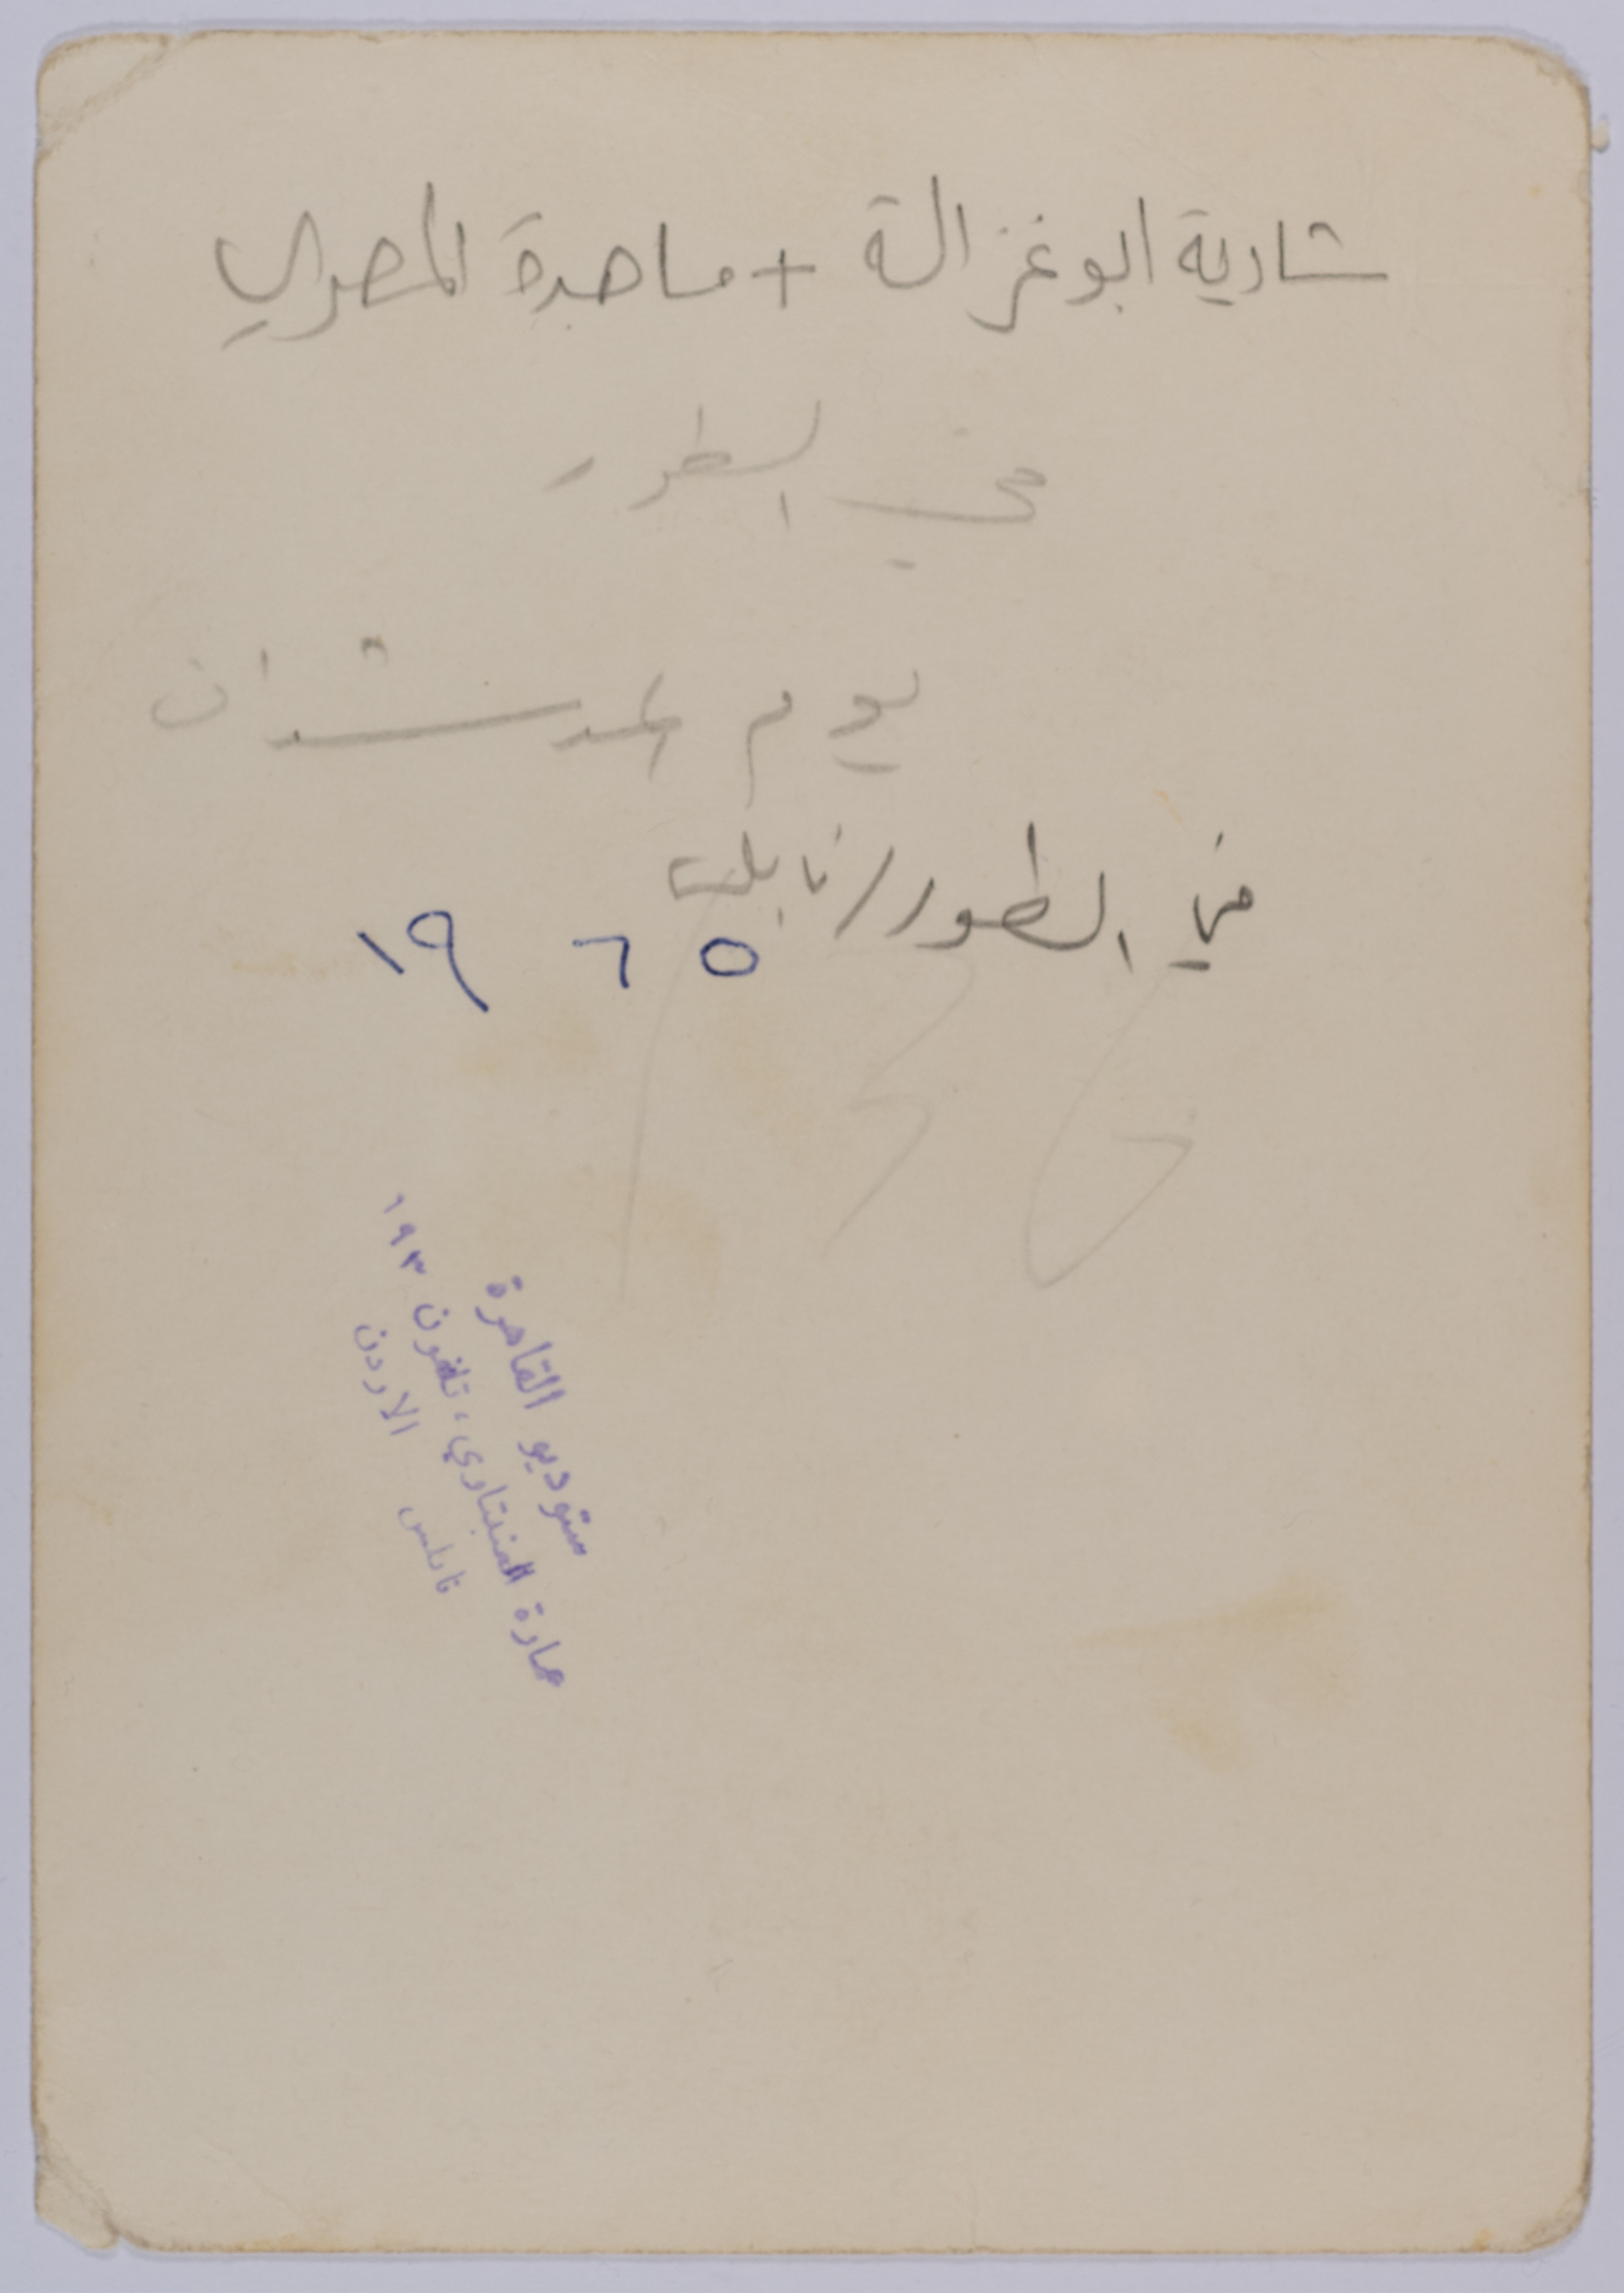 شادية ابو غزالة + ماجدة المصري
في الطور
يوم المرشدات
في الطور/نابلس
١٩٦٥
ستوديو القاهرة
عمارة العنبتاوي، تلفون ١٩٣
نابلس الاردن